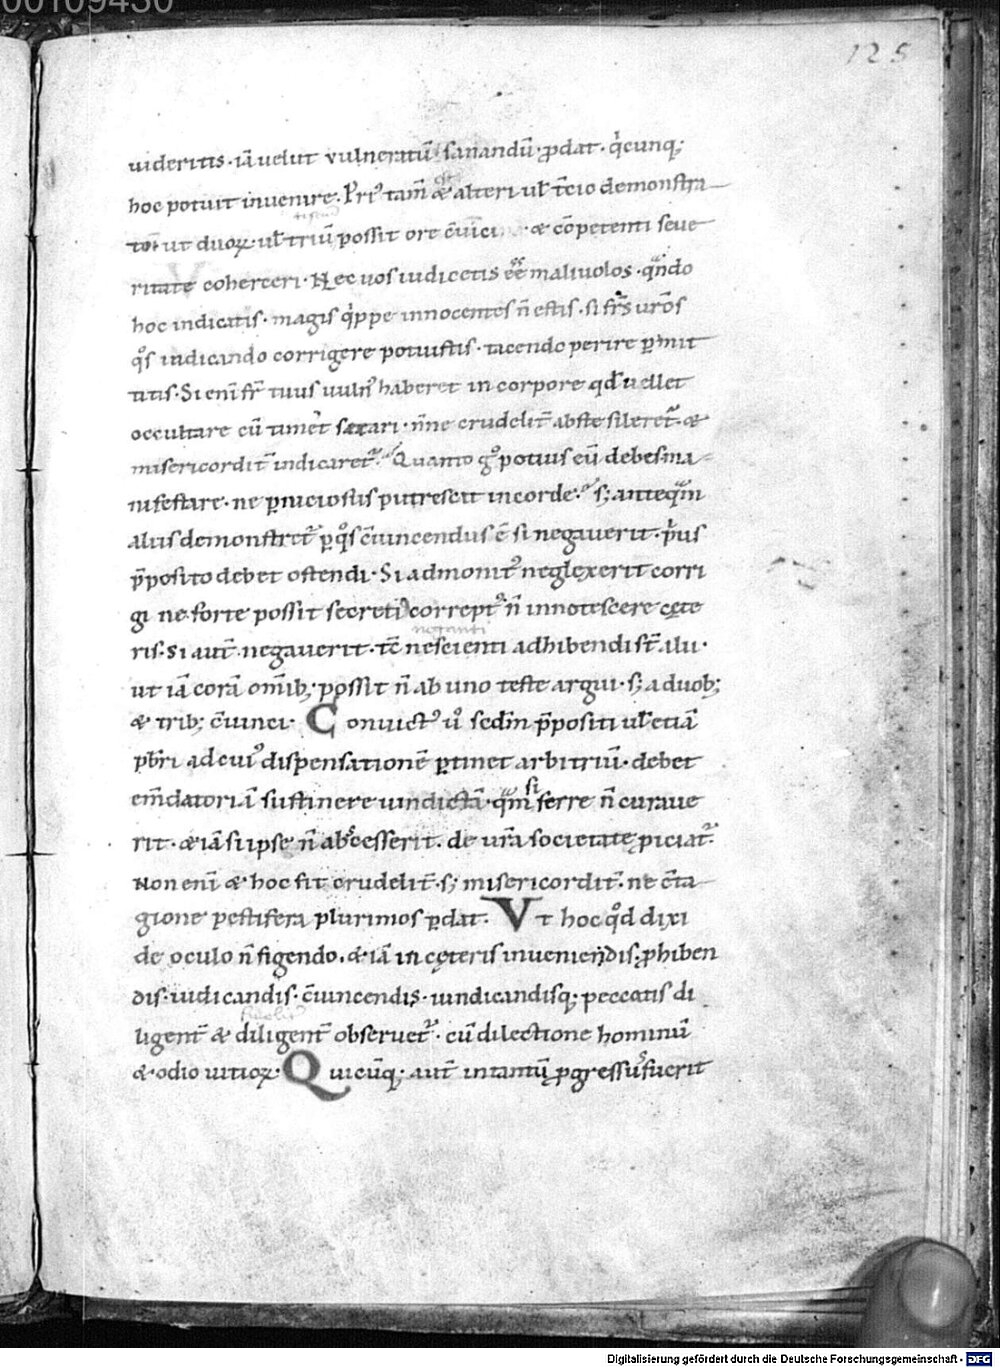 00109430
125
uideritis. iā uelut vulneratū sanandū ꝓdat. q̇cunq;
hoc potuit inuenire. Pri᷒ tam̄ & alteri uł t̄cio demonstra
ut duoꝝ uł triū possit ore c̄uici & cōpetenti seue
ritate coherceri. Nec uos iudicetis ēē maliuolos. qn̄do
hoc indicatis. magis q̇ppe innocentes n̄ estis. si fr̄s ur̄os
q̊s iudicando corrigere potuistis. tacendo perire ꝑmit
titis. Si eni fr̄ tuus uuln᷒ haberet in corpore qd̄ uellet
occultare cū timet secari. n̄ne crudelit̄ abste sileret᷑. &
misericordit̄ indicaret᷑. Quanto g̊ potius eū debes ma
nifestare. ne ꝑniciosius putrescat in corde. s; anteq̄m
aliis demonstret᷑ ꝑ q̊s c̄uincendus ē si negauerit. ṗus
p̄posito debet ostendi. Si admonit᷒ neglexerit corri
gi ne forte possit secreti᷒ corrept᷒ n̄ innotescere cęte
ris. Si aut̄ negauerit. t̄c nescienti adhibendi st̄ alii.
neganti
ut iā corā omīb; possit n̄ ab uno teste argui. s; a duob;
& trib; c̄uinci. Conuict᷒ u̾o sedm̄ p̄positi uł etiā
pb̄ri ad cui᷒ dispensationē ꝑtinet arbitriū. debet
em̄datoriā sustinere uindictā. qm̄ ferre n̄ curaue
si
rit. & iā si ipse n̄ abscesserit. de ur̄a societate ꝓiciat᷑.
Non eni & hoc fit crudelit̄. s; misericordit̄. ne c̄ta
gione pestifera plurimos ꝑdat. Vt hoc qd̊ dixi
de oculo n̄ figendo. & iā in cęteris inueniendis. ꝓhiben
dis. iudicandis. c̄uincendis. uindicandisq; peccatis di
ligent̄ & diligent̄ obseruet᷑. cū dilectione hominū
fidelit̄
& odio uitioꝝ. Quicūq; aut̄ intantū ꝓgressu᷒ fuerit
Digitalisierung gefördert durch die Deutsche Forschungsgemeinschaft - DFG